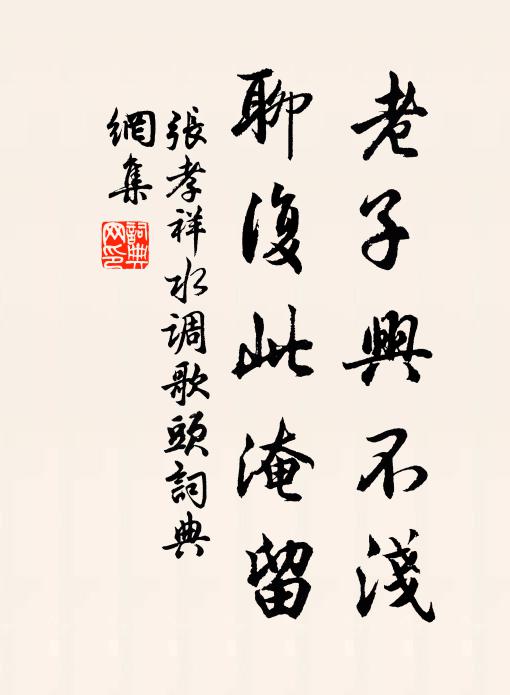 老子興不淺
聊復此淹留
張孝祥水调歌頭詞典
網集
詞典
网印